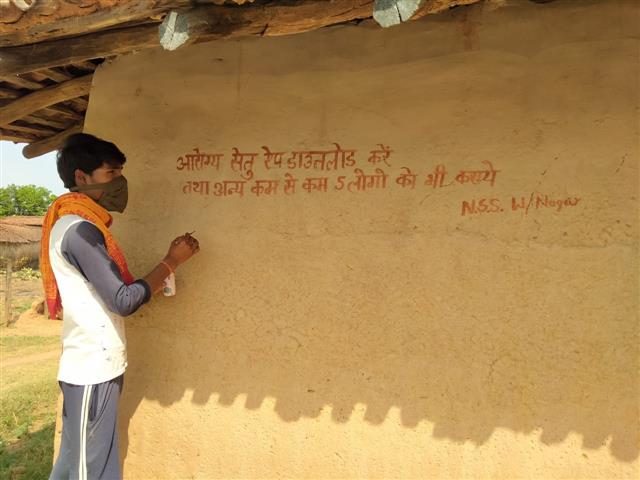 आरोग्य सेतु ऐप डाउनलोड करें
तथा अन्य कम से कम 5 लोगो को भी कराये
N.S.S. W/Nagar